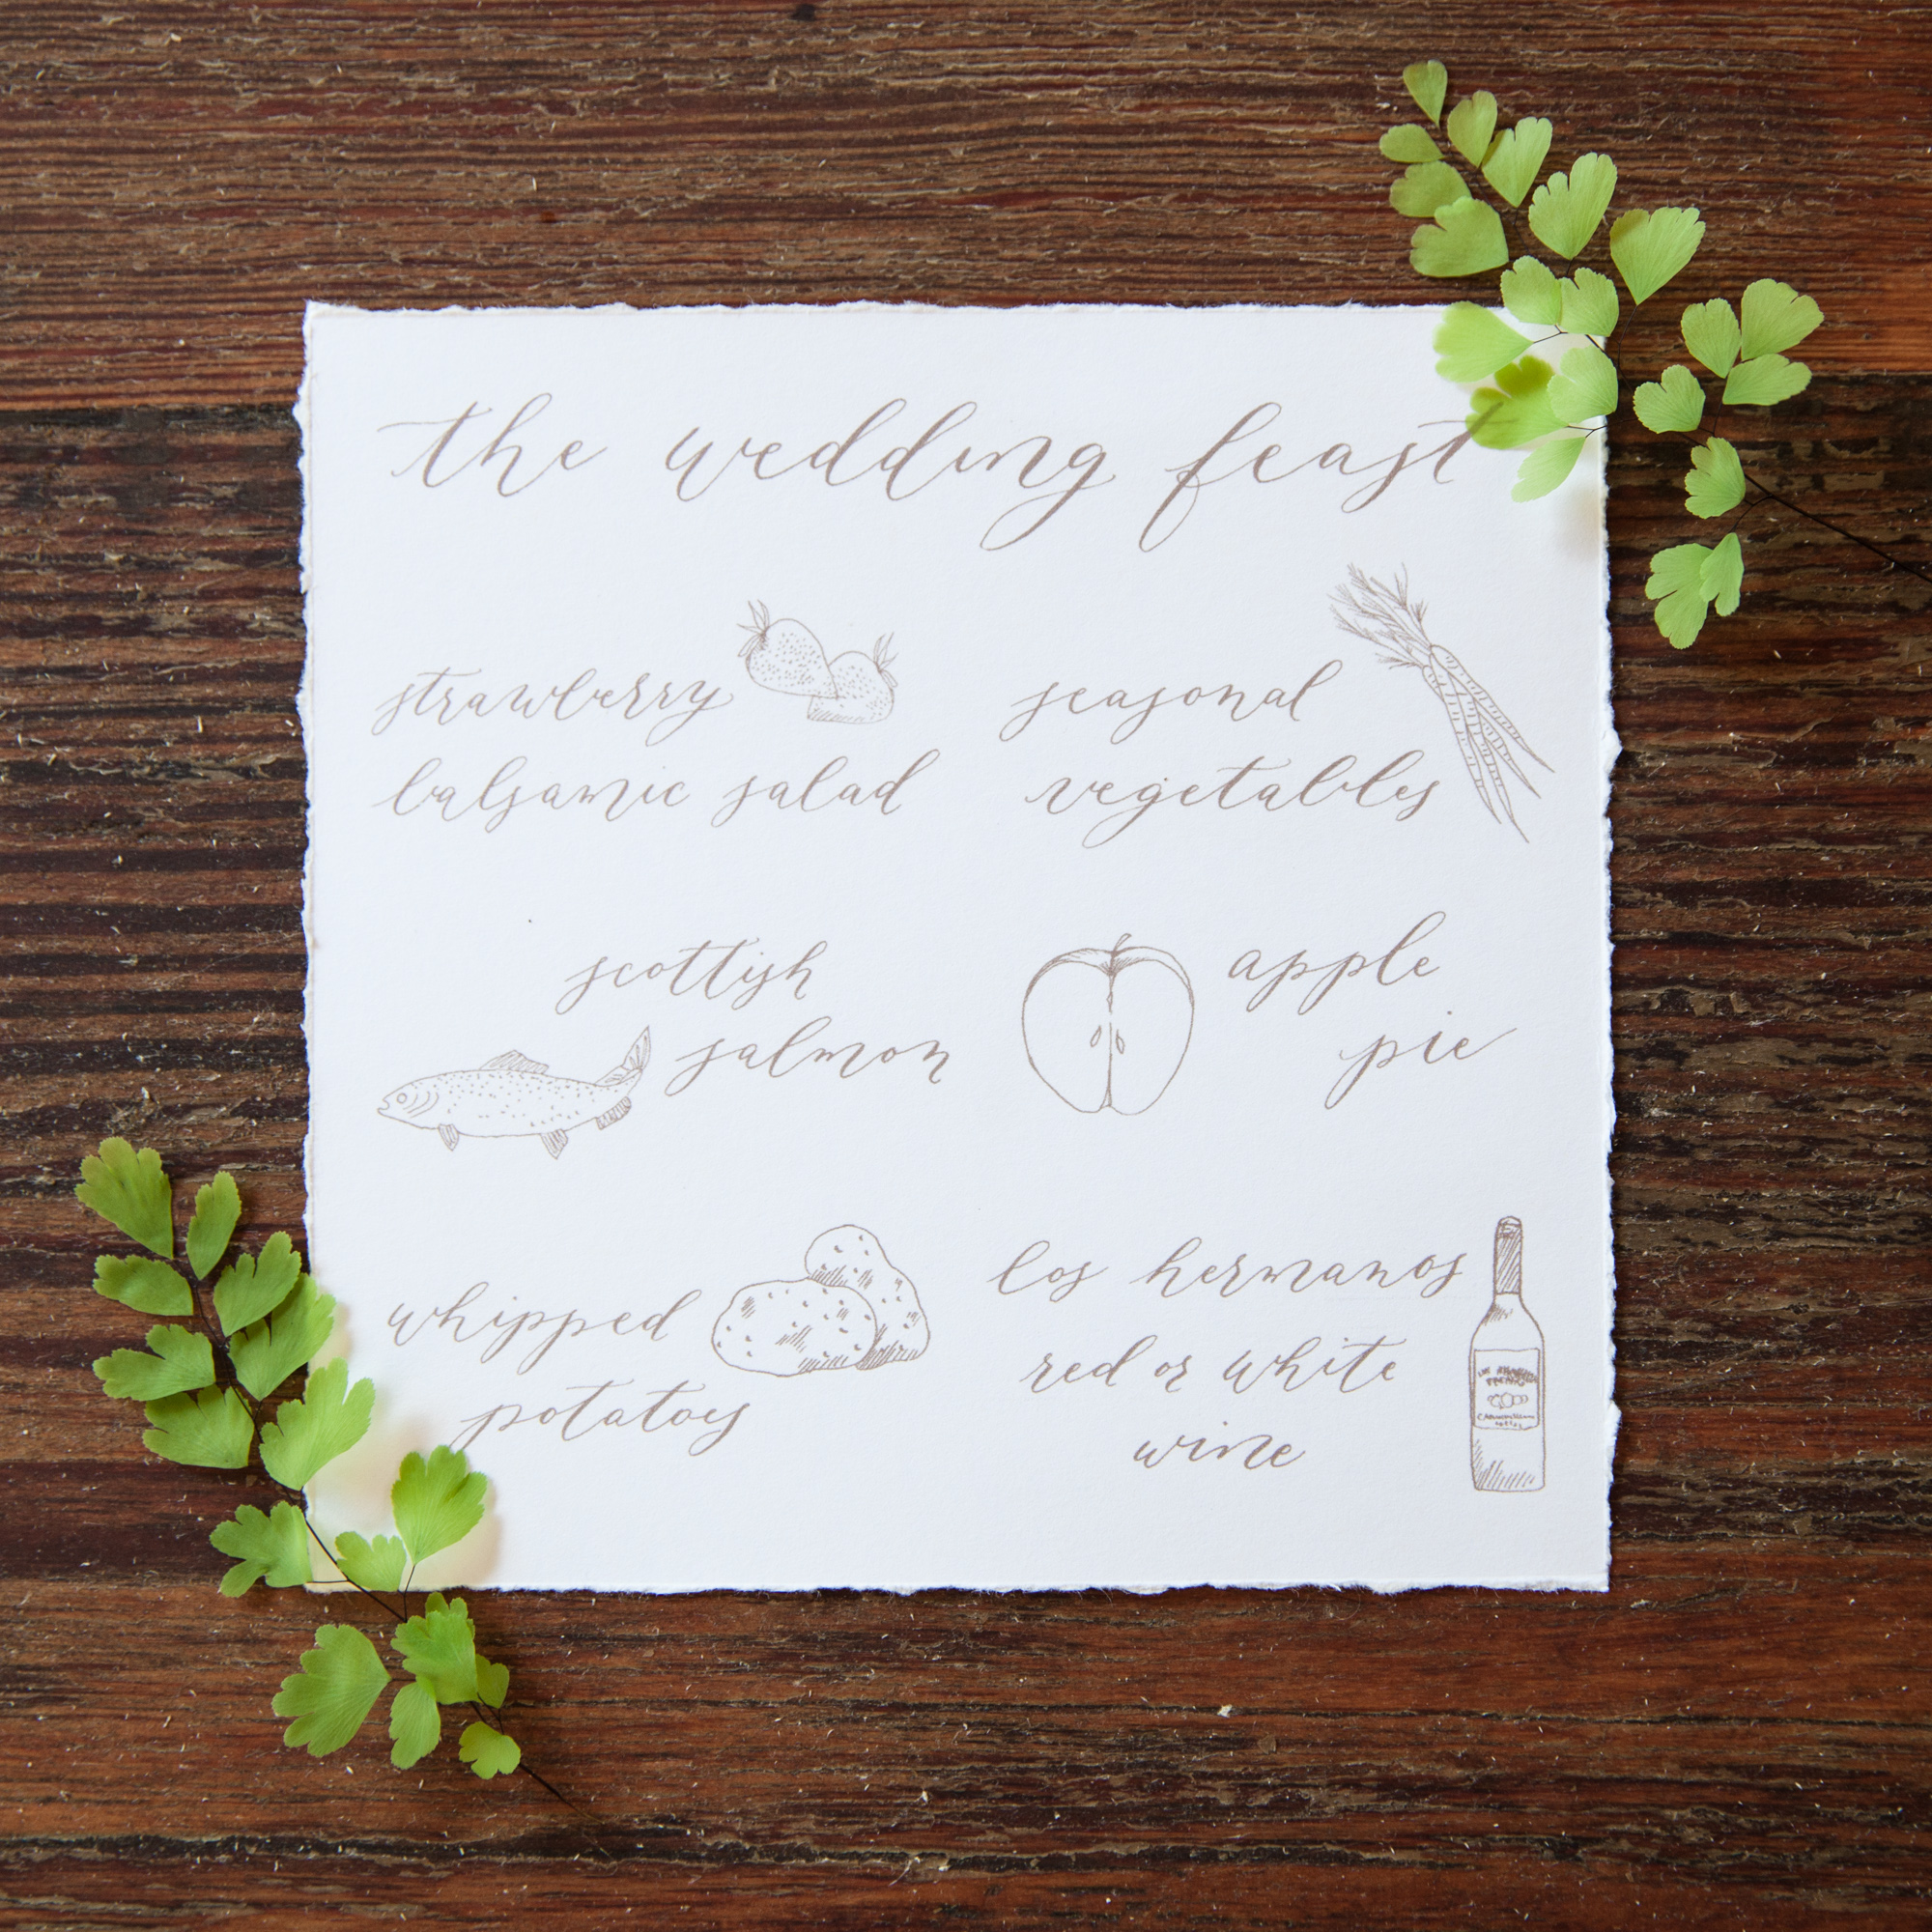 the wedding feast
strawberry
balsamic salad
seasonal
vegetables
scottish
salmon
apple
pie
whipped
potatoes
los hermanos
red or white
wine